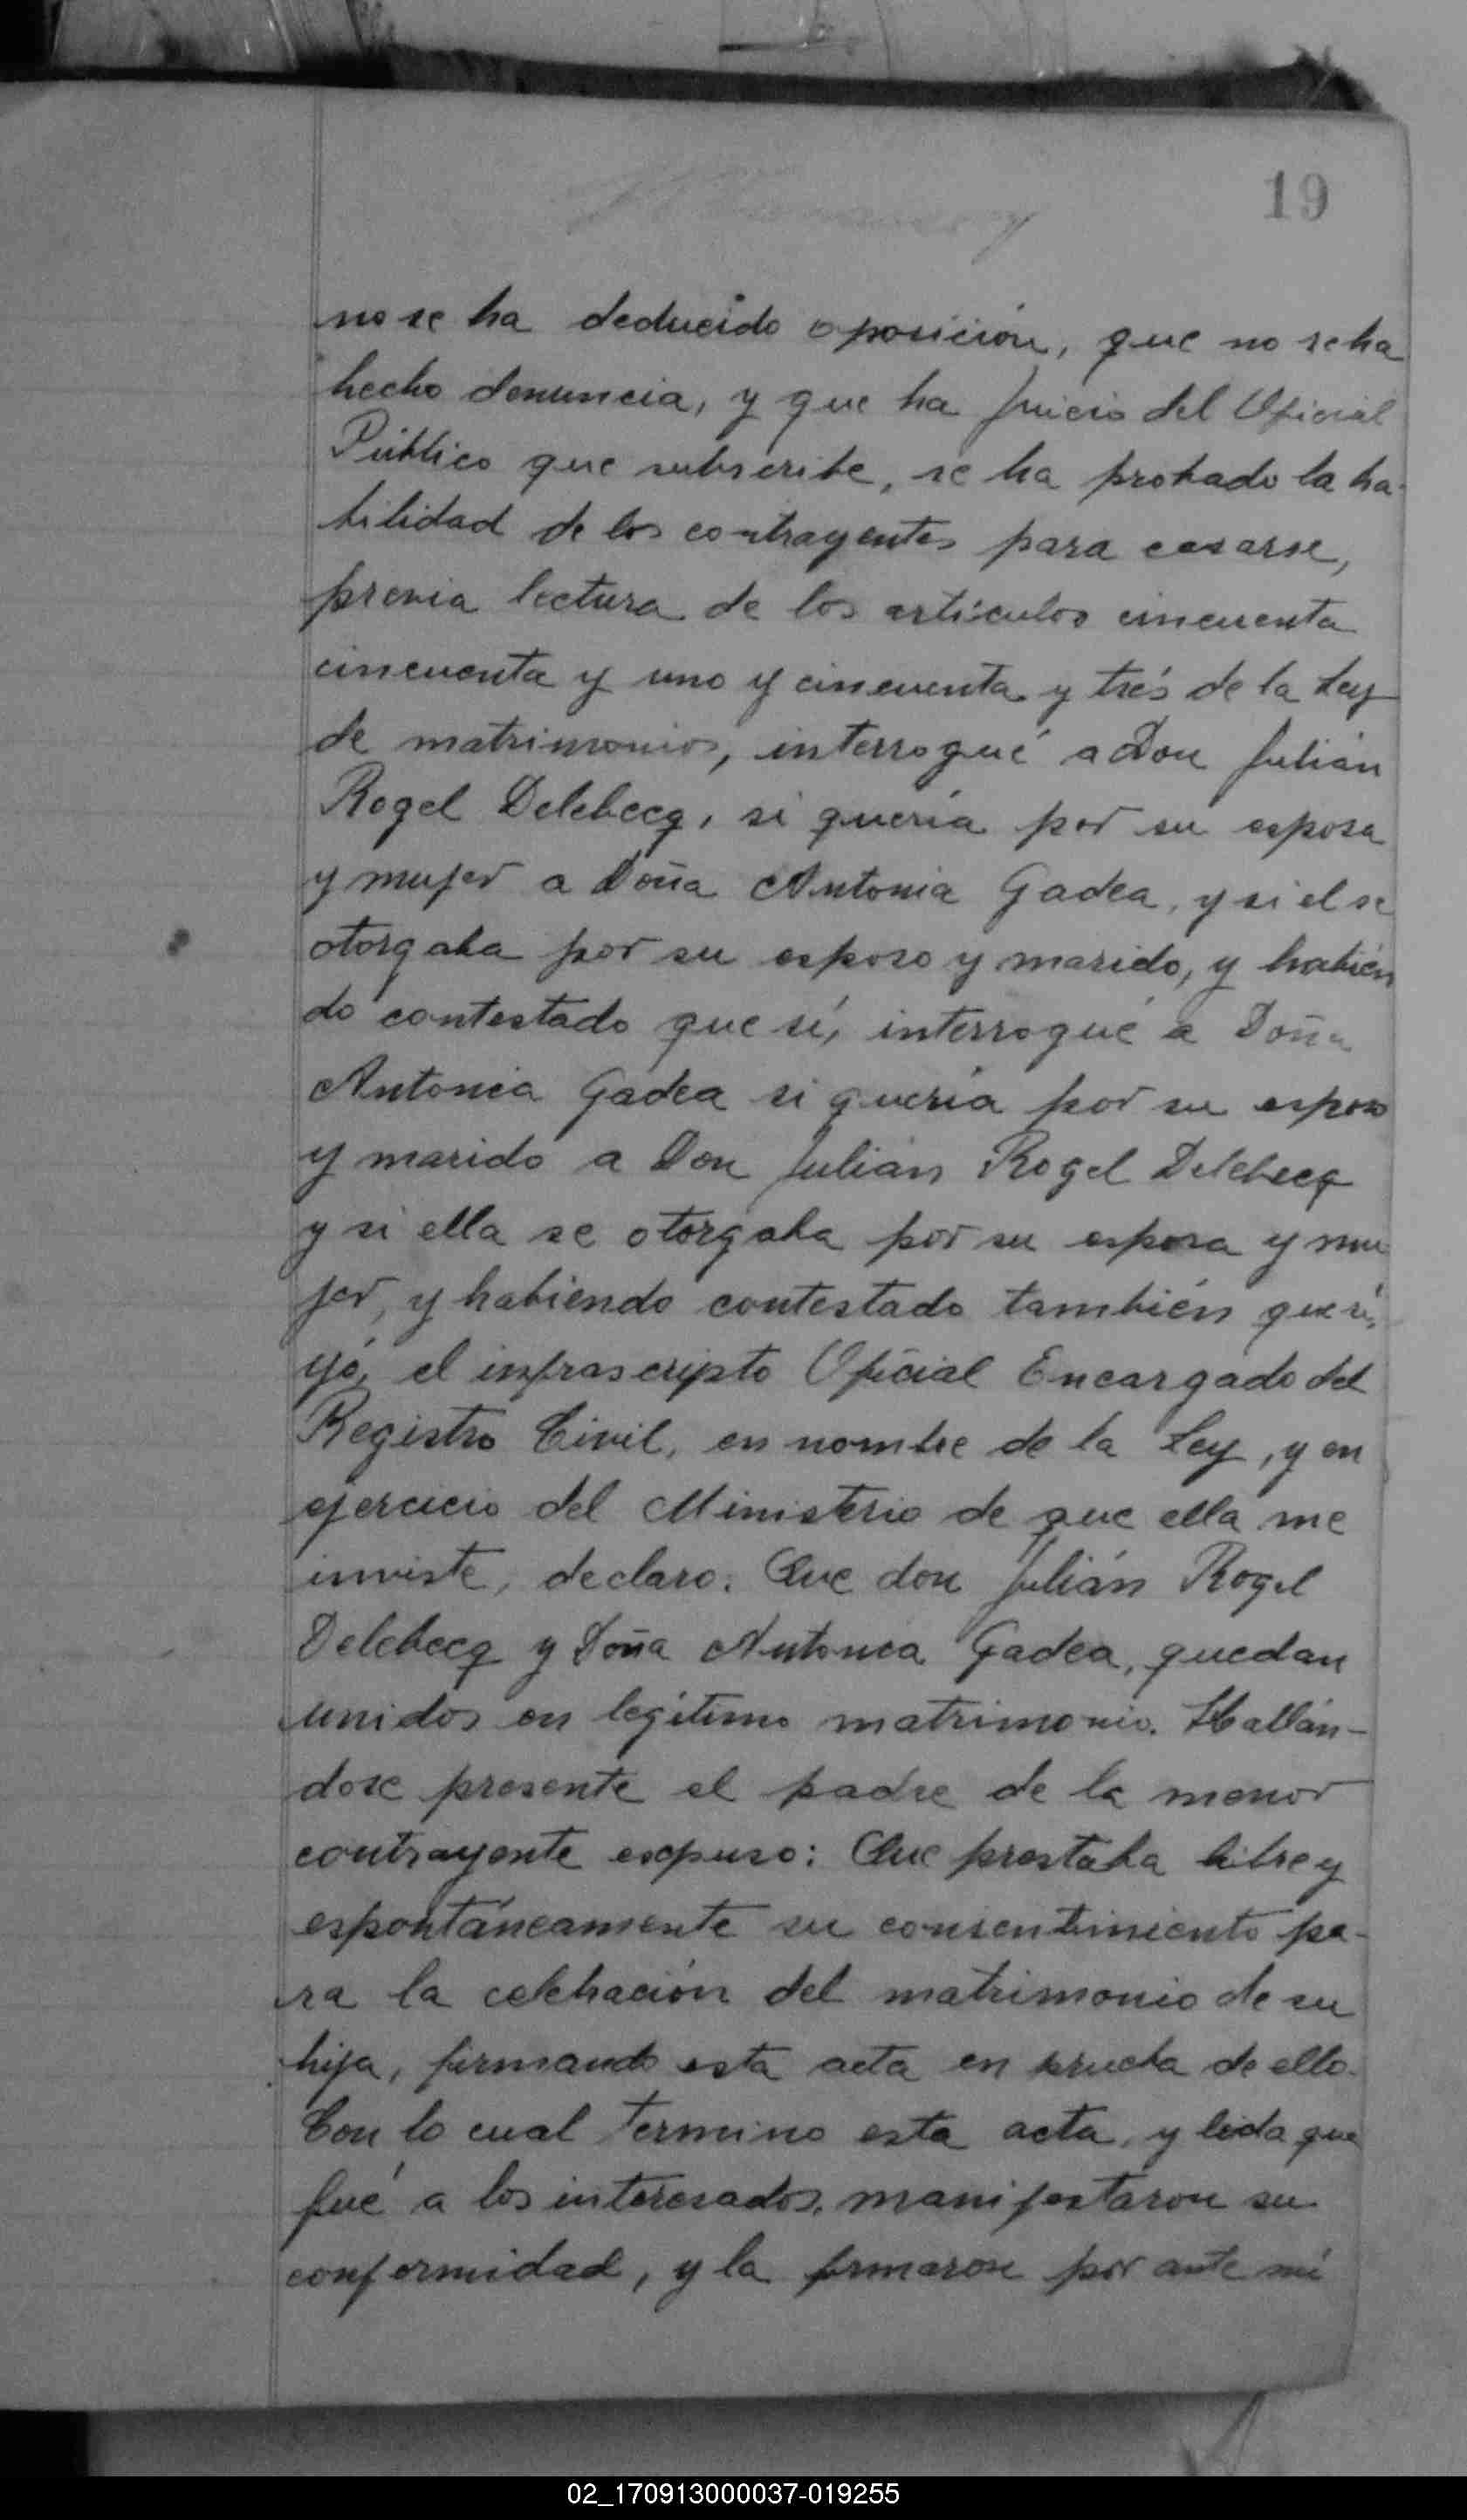 19
no se ha deducido oposición, que no se ha
hecho denuncia, y que ha juicio del Oficial
Público que subscribe, se ha probado la ha-
bilidad de los contrayentes para casarse,
previa lectura de los artículos cincuenta
cincuenta y uno y cincuenta y trés de la Ley
de matrimonios, interrogué a Don Julián
Rogel Delebecq, si quería por su esposa
y mujer a Doña Antonia Gadea, y si el se
otorgaba por su esposo y marido, y habién
do contestado que sí, interrogué a Doña
Antonia Gadea si quería por su esposo
y marido a Don Julián Rogel Delebecq
y si ella se otorgaba por su esposa y mu
jer, y habiendo contestado también que sí,
yó, el infrascripto Oficial Encargado del
Registro Civil, en nombre de la Ley, y en
ejercicio del Ministerio de que ella me
inviste, declaro: Que don Julián Rogel
Delebecq y Doña Antonia Gadea, quedan
unidos en legítimo matrimonio. Hallán-
dose presente el padre de la menor
contrayente expuso: Que prestaba libre y
espontáneamente su consentimiento pa-
ra la celebración del matrimonio de su
hija, firmando esta acta en prueba de ello.
Con lo cual termino esta acta, y leida que
fué a los interesados, manifestaron su
conformidad, y la firmaron por ante mi
02_170913000037-019255